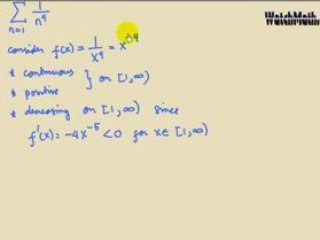 WatchMath
∑ n=1 1/n⁴
consider f(x) = 1/x⁴ = x⁻⁴
* continuous
* positive } on [1, ∞)
* decreasing on [1, ∞) since
f'(x) = -4x⁻⁵ < 0 for x ∈ [1, ∞)